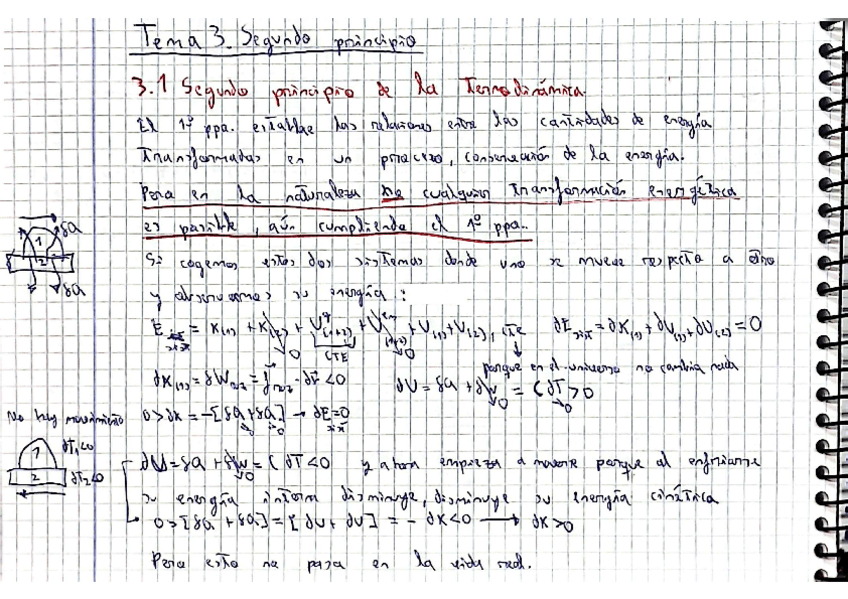 Tema 3. Segundo principio
3.1 Segundo principio de la Termodinámica.
El 1º ppa. establece las relaciones entre las cantidades de energía
transformadas en un proceso, conservación de la energía.
Pero en la naturaleza no cualquier transformación energética
es posible, aún cumpliendo el 1º ppa.
Si cogemos estos dos sistemas donde uno se mueve respecto a otro
y observamos su energía:
1 2 δQ δQ
E sist = K(1) + K(2) + U(1+2) + U(1+2) + U(1) + U(2), cte dE sist = dK(1) + dU(1) + dU(2) = 0
→0 CTE →0
porque en el universo no cambia nada
dK(1) = δW = f · dr < 0 dU = δQ + δW = C dT > 0
→0 →0
No hay movimiento 0 > dK = -[δQ + δQ] → dE sist = 0
1 dT₁<0
2 dT₂<0
dU = δQ + δW = C dT < 0 y ahora empieza a moverse porque al enfriarse
→0
su energía interna disminuye, disminuye su energía cinética
0 > [δQ + δQ] = [dU + dU] = - dK < 0 → dK > 0
Pero esto no pasa en la vida real.